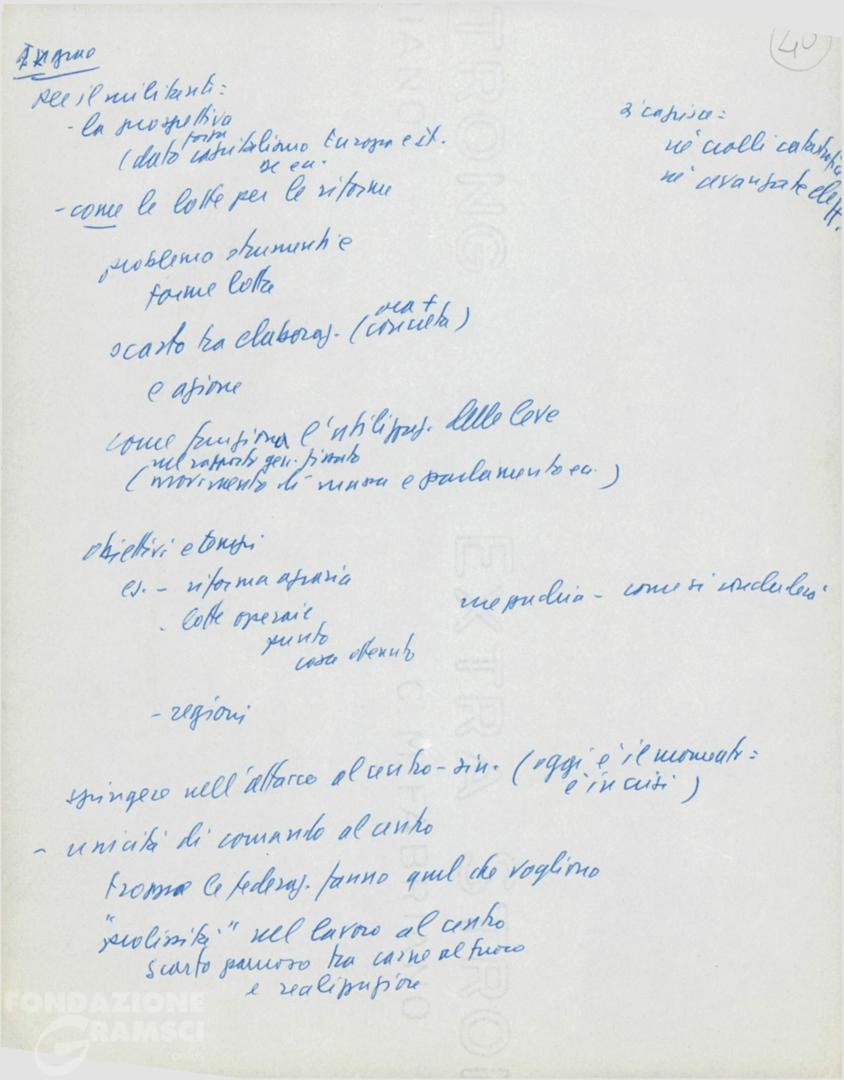 40
per i militanti:
- la prospettiva
forza
(dato capitalismo Europa e it.
ecc.
si capisce:
né crolli catastrofici
né avanzate elett.
- come le lotte per le riforme
problema strumenti e
forme lotta
scarto tra elaboraz. (ora +
concreta)
e azione
come funziona l'utilizzaz. delle leve
nel rapporto gen. fissato
(movimento di massa e parlamento ecc.)
obiettivi e tempi
es. - riforma agraria
- lotte operaie
punto
cosa ottenuto
mezzadria - come si concluderà
- regioni
spingere nell'attacco al centro-sin. (oggi è il momento:
è in crisi)
- unicità di comando al centro
troppo le federaz. fanno quel che vogliono
"prolissità" nel lavoro al centro
scarto pauroso tra carne al fuoco
e realizzazione
STRONG
EXTRA STRONG
C. M. FABRIANO
FONDAZIONE
GRAMSCI